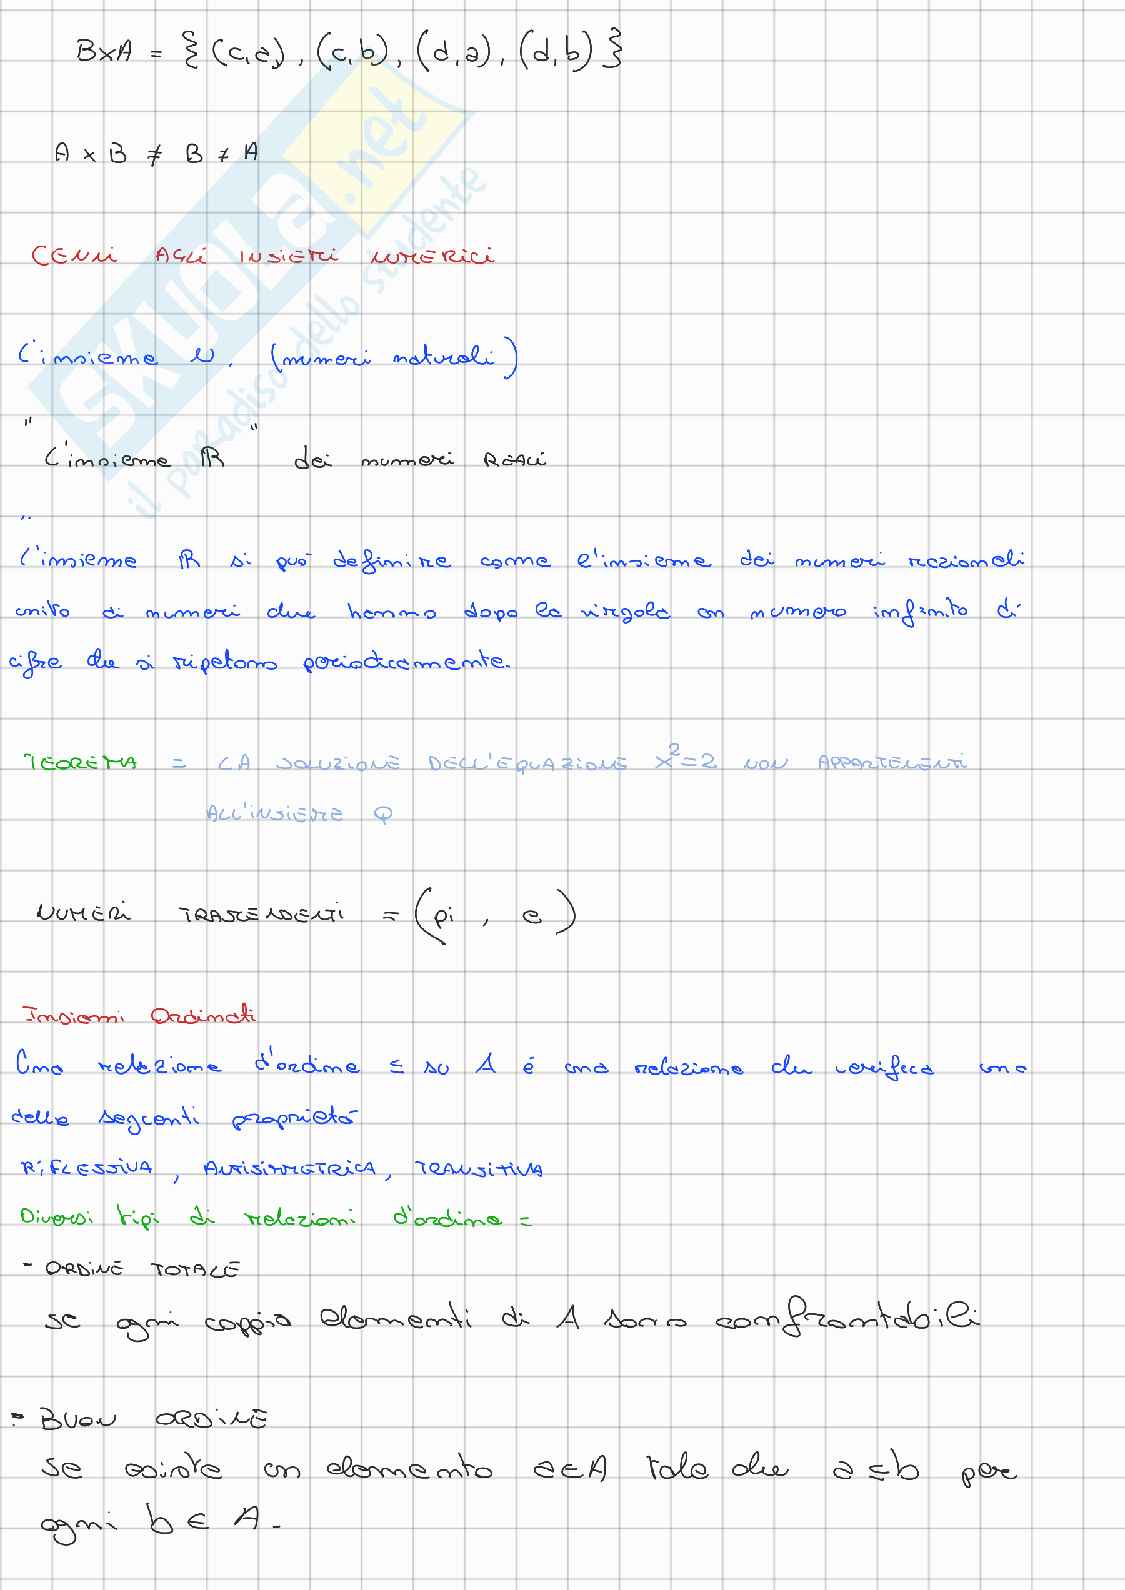 B×A = {(c,a), (c,b), (d,a), (d,b)}
A × B ≠ B ≠ A
CENNI AGLI INSIEMI NUMERICI
L'insieme N. (numeri naturali)
"L'insieme ℝ" dei numeri REALI
"
L'insieme ℝ si può definire come l'insieme dei numeri razionali
unito ai numeri che hanno dopo la virgola un numero infinito di
cifre che si ripetono periodicamente.
TEOREMA = LA SOLUZIONE DELL'EQUAZIONE x²=2 NON APPARTENENTI
ALL'INSIEME Q
NUMERI TRASCENDENTI = (pi , e)
Insiemi Ordinati
Una relazione d'ordine ≤ su A é una relazione che verifica una
delle seguenti proprietà
RIFLESSIVA, ANTISIMMETRICA, TRANSITIVA
Diversi tipi di relazioni d'ordine =
- ORDINE TOTALE
se ogni coppia elementi di A sono confrontabili
- BUON ORDINE
se esiste un elemento a∈A tale che a≤b per
ogni b∈A.
SKUOLA.net
il paradiso dello studente